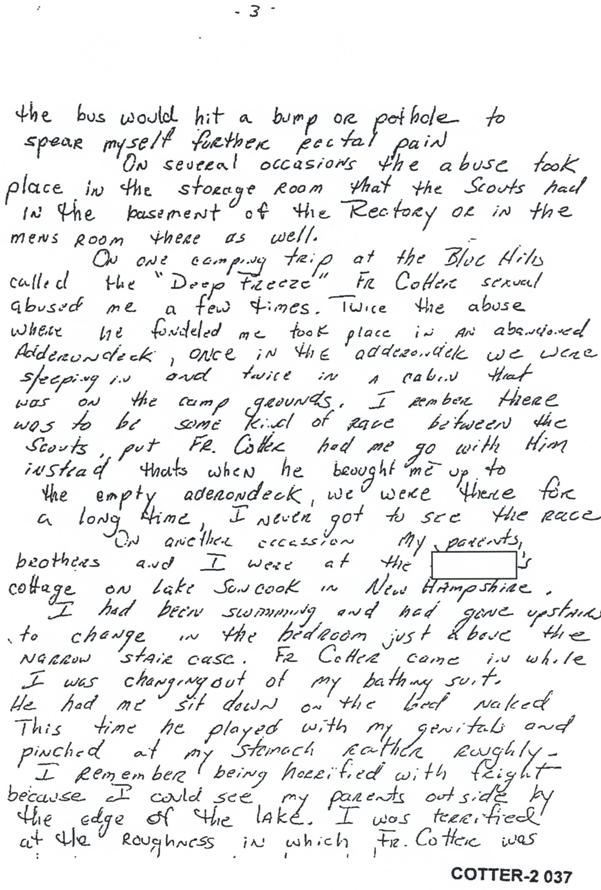 - 3 -
the bus would hit a bump or pothole to
spear myself further rectal pain
On several occasions the abuse took
place in the storage room that the Scouts had
in the basement of the Rectory or in the
mens room there as well.
On one camping trip at the Blue Hills
called the "Deep Freeze" Fr Cotter sexual
abused me a few times. Twice the abuse
where he fondeled me took place in an abandioned
Adderondeck, once in the adderondick we were
sleeping in and twice in a cabin that
was on the camp grounds. I rember there
was to be some kind of race between the
Scouts, but Fr. Cotter had me go with Him
instead thats when he brought me up to
the empty aderondeck, we were there for
a long time, I never got to see the race
On another occassion my parents,
brothers and I were at the 's
cottage on Lake Suncook in New Hampshire.
I had been swimming and had gone upstairs
to change in the bedroom just above the
narrow stair case. Fr Cotter came in while
I was changing out of my bathing suit.
He had me sit down on the bed naked
This time he played with my genitals and
pinched at my stomach rather roughly-
I remember being horrified with fright
because I could see my parents outside by
the edge of the lake. I was terrified
at the roughness in which Fr. Cotter was
COTTER-2 037